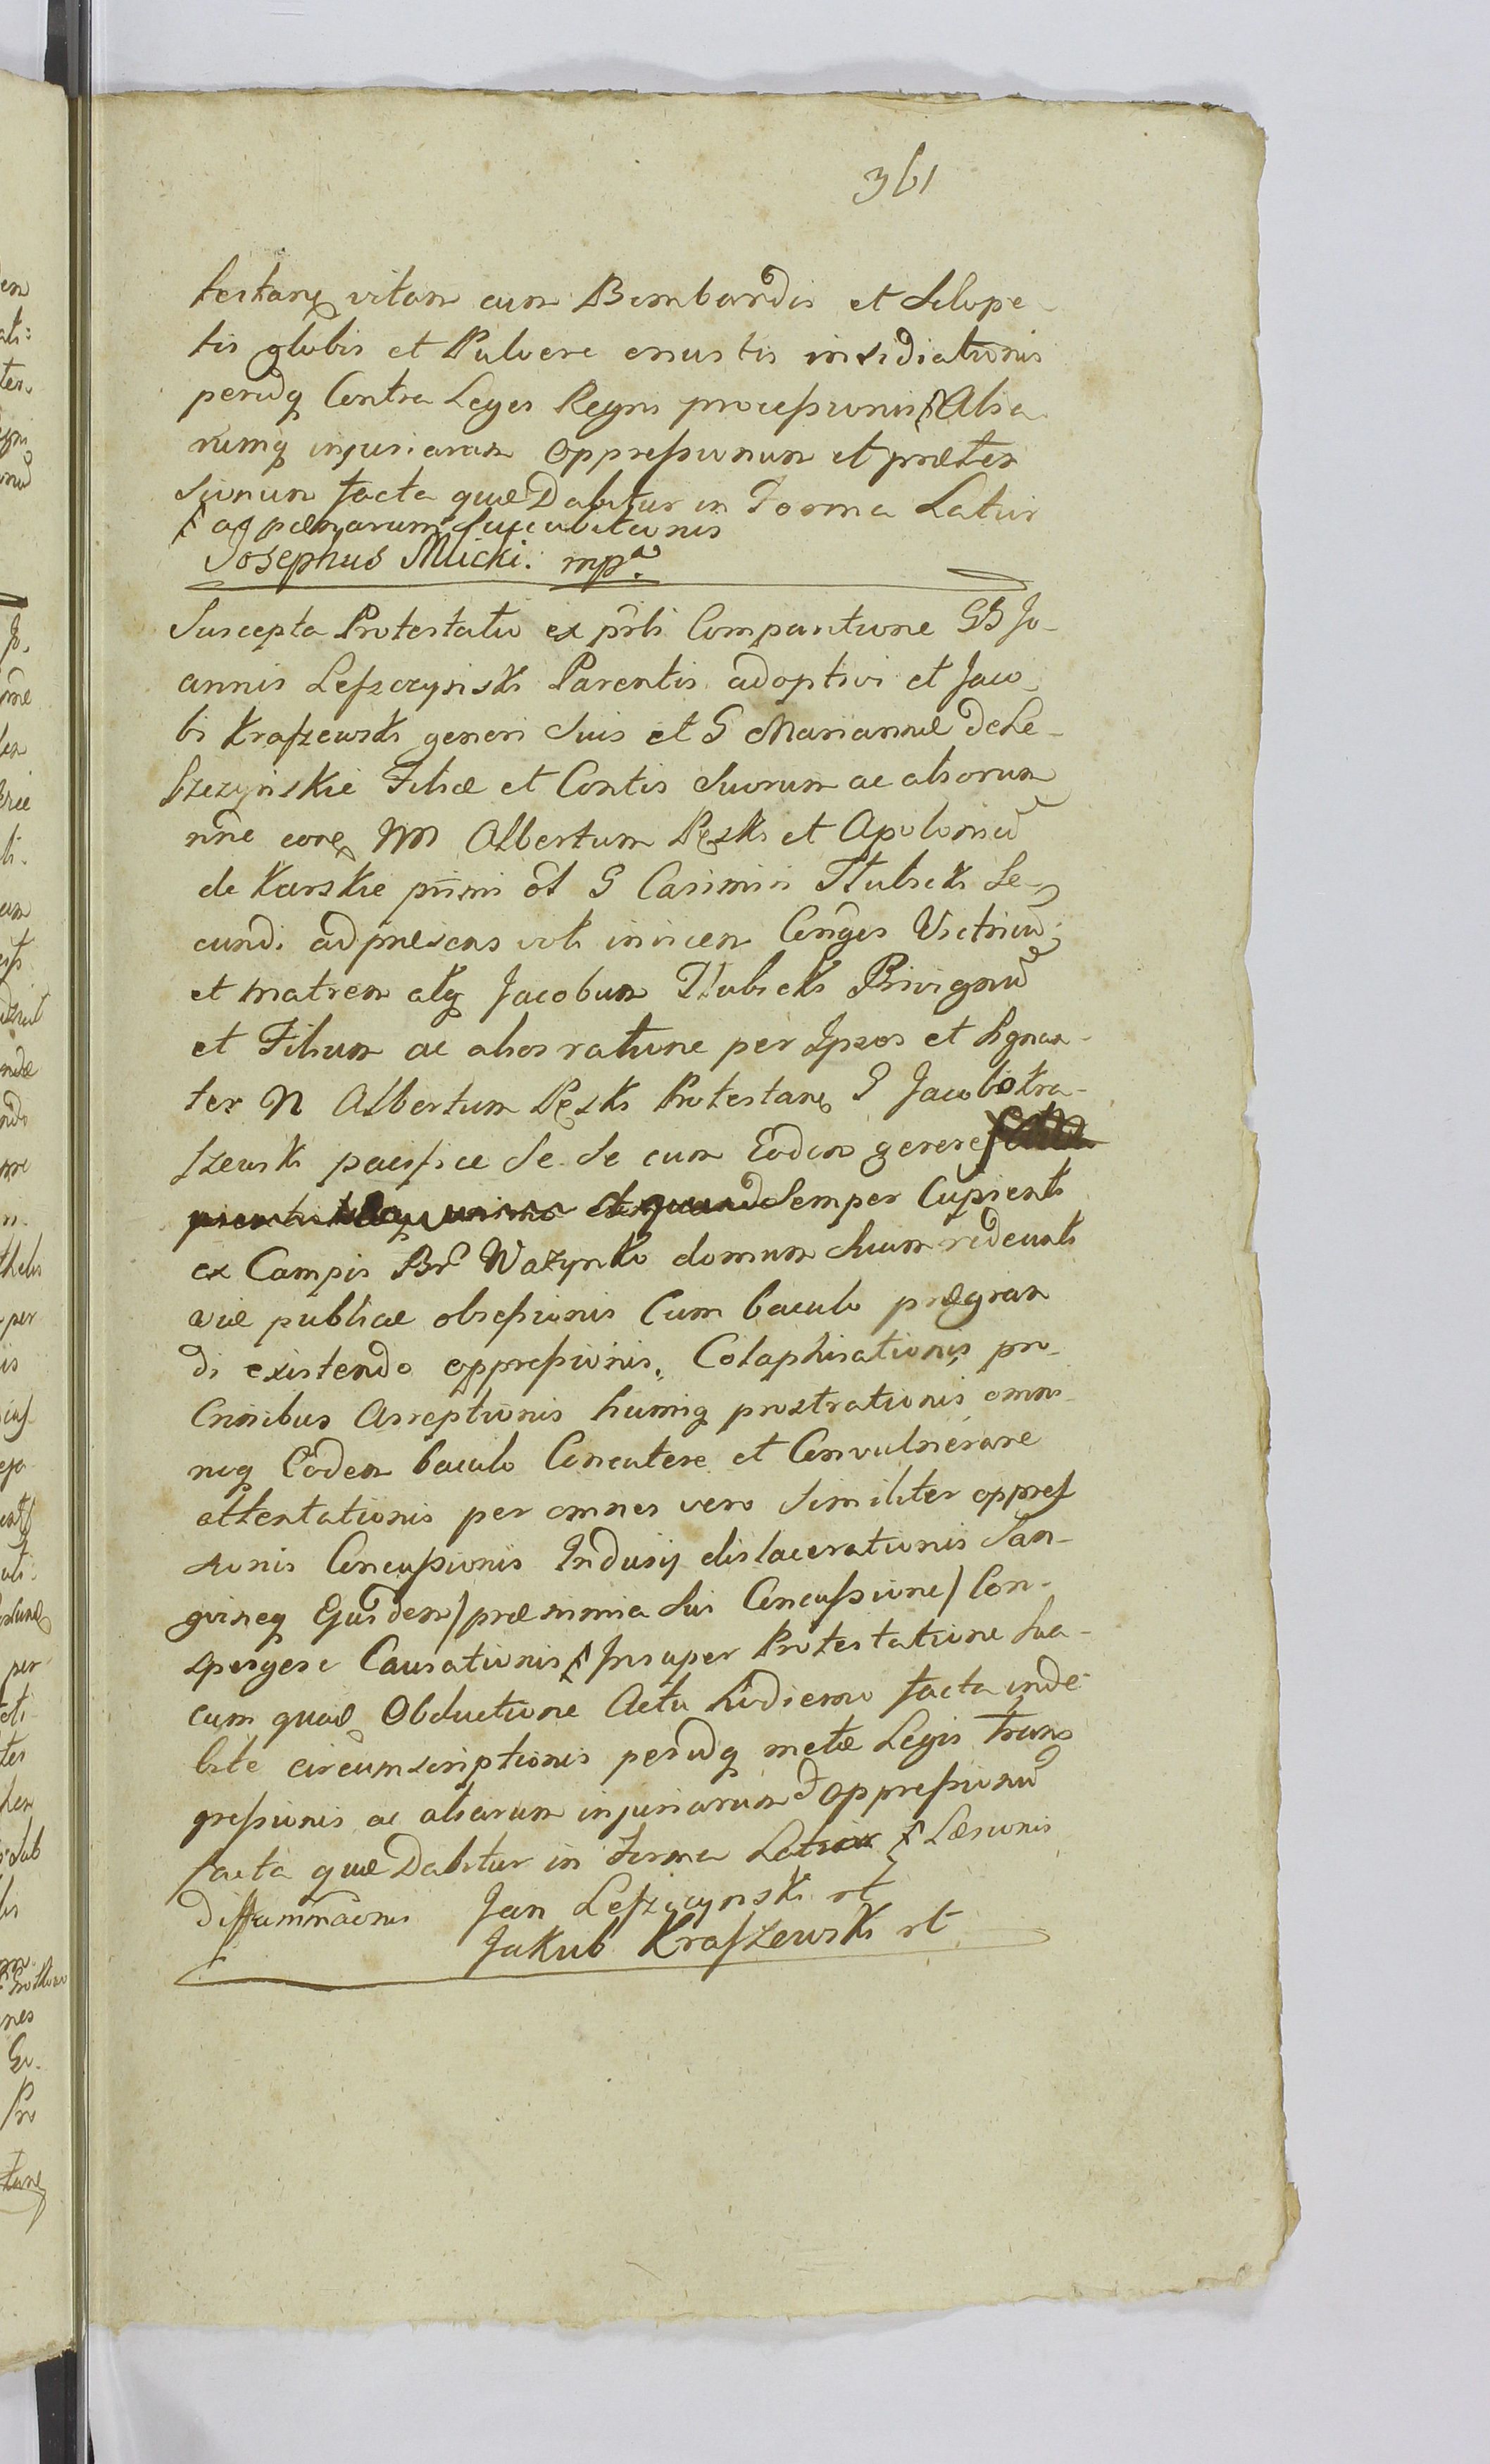 361
testan vitam cum Bombardis et Sclope-
tis globis et Pulvere onustis insidiationis
peridq Contra Leges Regni processionis Alia
rumq injuriarum oppressionum et præten
sionum facta quæ Dabitur in Forma Latiri
ac pænarum Succubitionis
Josephus Mlicki. mpa
Suscepta Protestatio ex prti Comparitione GG Jo-
annis Leszczynski Parentis adoptivi et Jaco
bi Kraszewski generi Suis et G Mariannæ de Le-
szczynskie Filiæ et Contis Suorum ac aliorum
nne core NN Albertum Peski et Apoloniã
de Karskie primi et G Casimiri Hubicki Se-
cundi ad præsens voti invicem Conges Victricũ
et Matrem atq Jacobum Hubicki Privignũ
et Filium ac alios ratione per Ipsos et signan-
ter N Albertum Peski Protestan G Jacobo Kra-
szewski pacifice Se Se cum Eodem gerere
Semper Cupienti
ex Campis Br Wazynko domum Suam redeunti
viæ publicæ obsessionis Cum baculo prægran
di existendo oppressionis, Colaphisationis pro
Crinibus Arreptionis humiq prostrationis omni
noq Eodem baculo Concutere et Convulnerare
attentationis per omnes vero Similiter oppres
sionis Concussionis Indusij dislacerationis San-
guineq Ejusdem / præ nimia Sui Concussione / Con-
spergere Causationis Insuper Protestatione Sua
cum quad Obductione Actu hodierno facta inde
bite circumscriptionis peridq metæ Legis trans
gressionis ac aliarum injuriarum et oppressionũ
facta quæ Dabitur in Forma Latiori Læsionis
diffammaonis Jan Leszczynski rt
Jakub Kraszewski rt